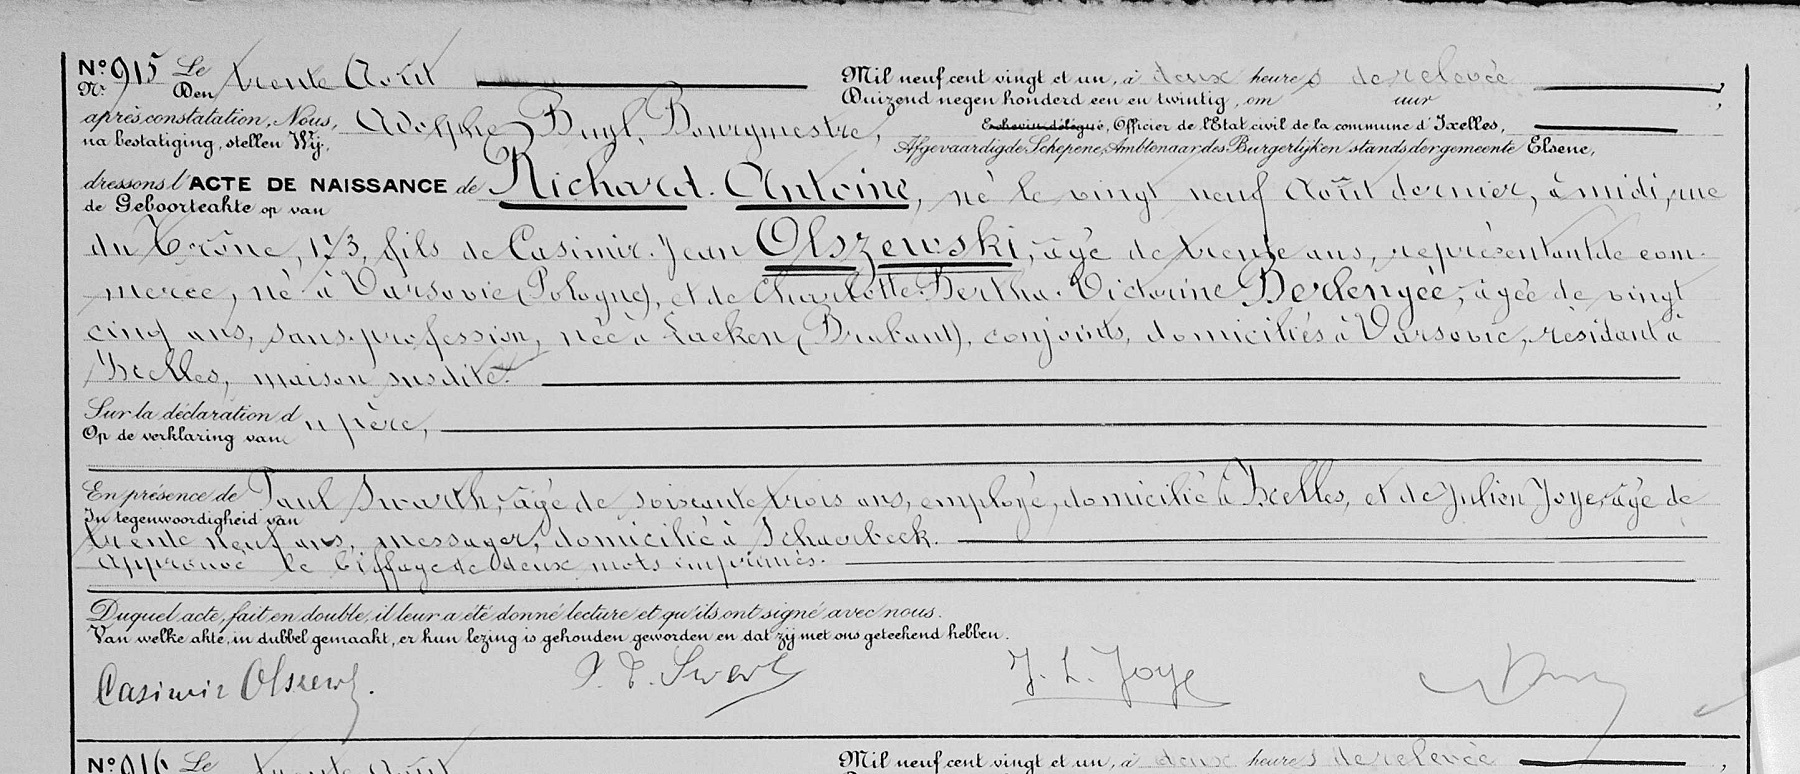 Nº 915 Le trente Août Mil neuf cent vingt et un, à deux heures de relevée,
Nr Den Duizend negen honderd een en twintig, om uur,
après constatation, Nous, Adolphe Buyl, Bourgmestre, Echevin délégué, Officier de l'Etat civil de la commune d'Ixelles,
na bestatiging, stellen Wij, Afgevaardigde Schepene, Ambtenaar des Burgerlijken stands der gemeente Elsene,
dressons l'ACTE DE NAISSANCE de Richard. Antoine, né le vingt neuf Août dernier, à midi, rue
de Geboorteakte op van
du Trône, 173, fils de Casimir. Jean Olszewski, âgé de trente ans, représentant de com-
merce, né à Varsovie (Pologne), et de Charlotte. Bertha. Victorine Berlengée, âgée de vingt
cinq ans, sans profession, née à Laeken (Brabant), conjoints, domiciliés à Varsovie, résidant à
Ixelles, maison susdite.
Sur la déclaration du père,
Op de verklaring van
En présence de Paul Swarth, âgé de soixante trois ans, employé, domicilié à Ixelles, et de Julien Joye, âgé de
In tegenwoordigheid van
trente neuf ans, messager, domicilié à Schaerbeek.
Approuvé le biffage de deux mots imprimés.
Duquel acte, fait en double, il leur a été donné lecture et qu'ils ont signé avec nous.
Van welke akte, in dubbel gemaakt, er hun lezing is gehouden geworden en dat zij met ons geteekend hebben.
Casimir Olszewski. J. L. Joye
Nº 916 Le trente Août Mil neuf cent vingt et un, à deux heures de relevée,